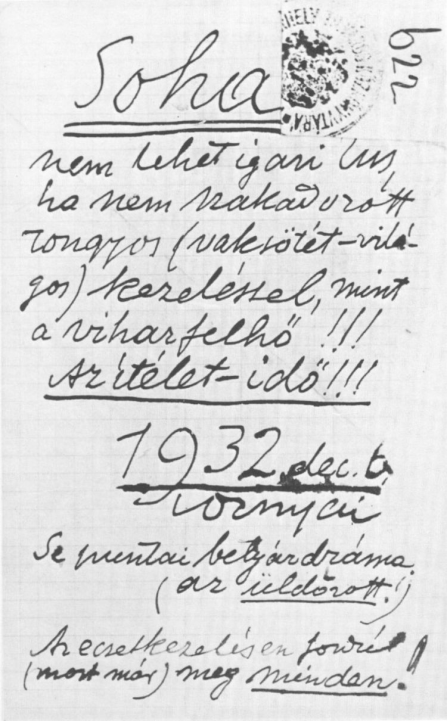 622
Soha
nem lehet igazi
ha nem szakadozott
rongyos (vaksötét-vilá-
gos) kezeléssel, mint
a viharfelhő !!!
Az ítélet-idő!!!
1932 dec.
Tornyai
betyárdráma
(az üldözott!)
Az ecsetkezelésen
(most már) meg minden!